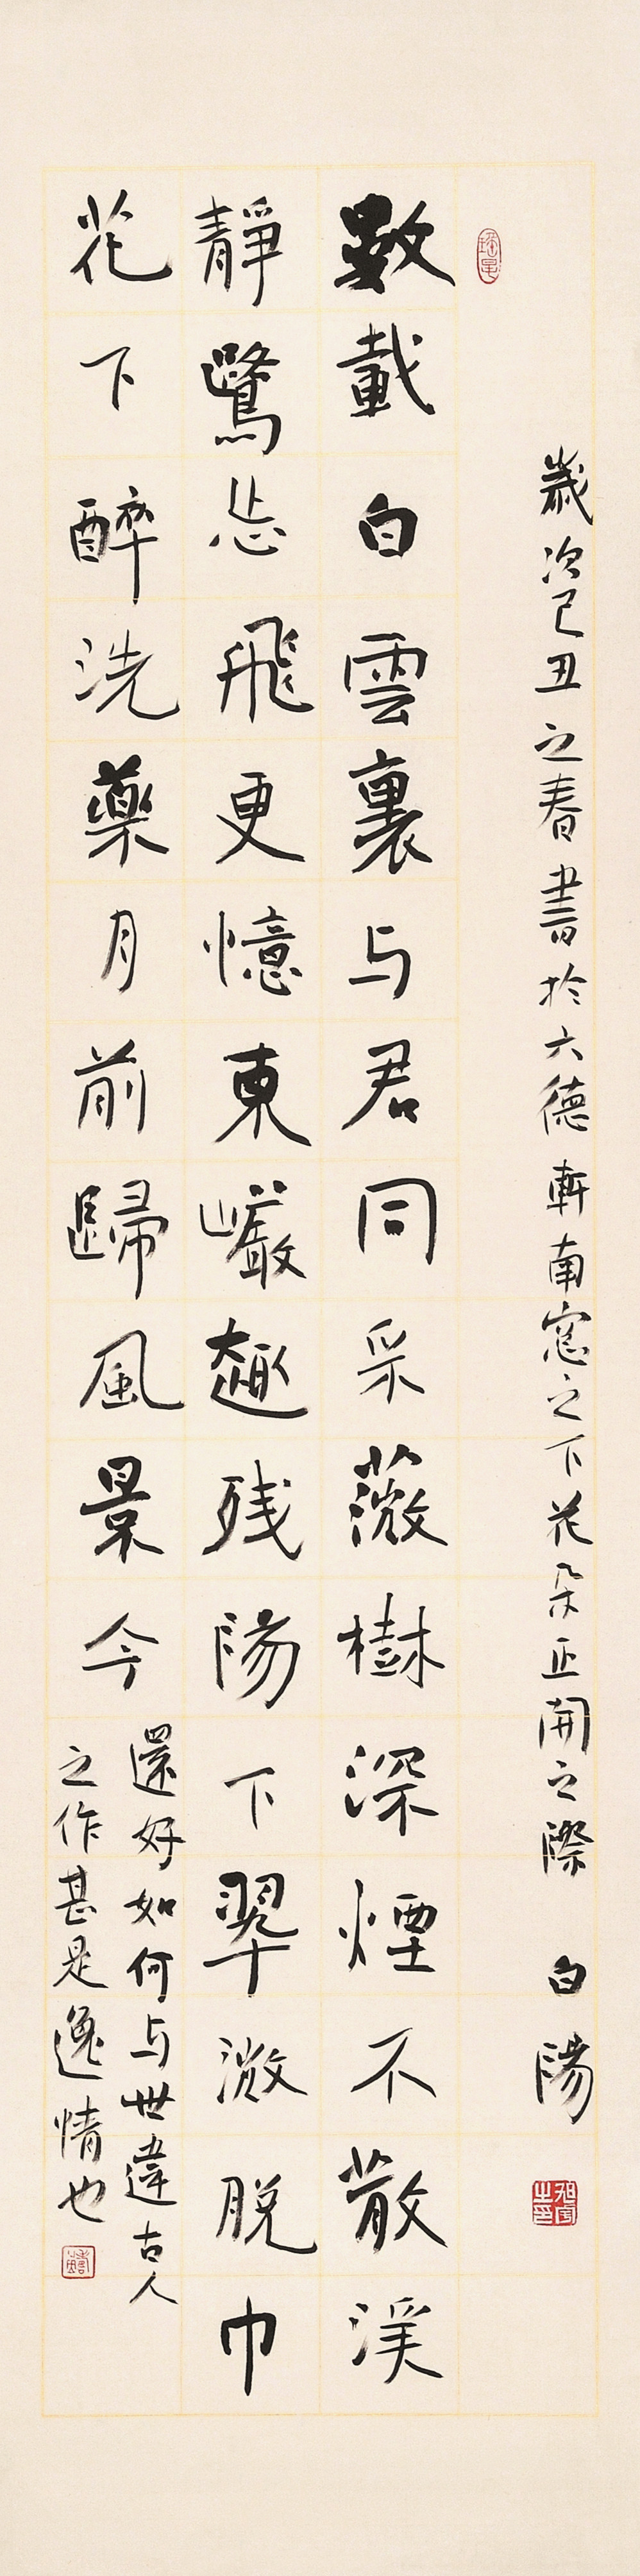 歲次己丑之春書於六德軒南窓之下花朵正開之際 白陽
數載白雲裏与君同采薇樹深煙不散溪
靜鷺忘飛更憶東巖趣残陽下翠微脱巾
花下醉洗藥月前歸風景今
還好如何与世違古人
之作甚是逸情也